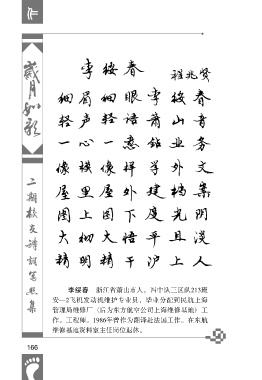 岁月如歌
二期校友诗词写照集
李绥春
雅兆贤
细眉细眼李绥春
轻声轻语萧山音
一心一意钻业务
屋里屋外建档案
图上图下度光阴
大彻大悟平且淡
精明精干沪上人
李绥春　浙江省萧山市人，四中队三区队215班
安—2飞机发动机维护专业员，毕业分配到民航上海
管理局维修厂（后为东方航空公司上海维修基地）工
作，工程师。1986年曾作为翻译赴法国工作，在东航
维修基地资料室主任岗位退休。
166